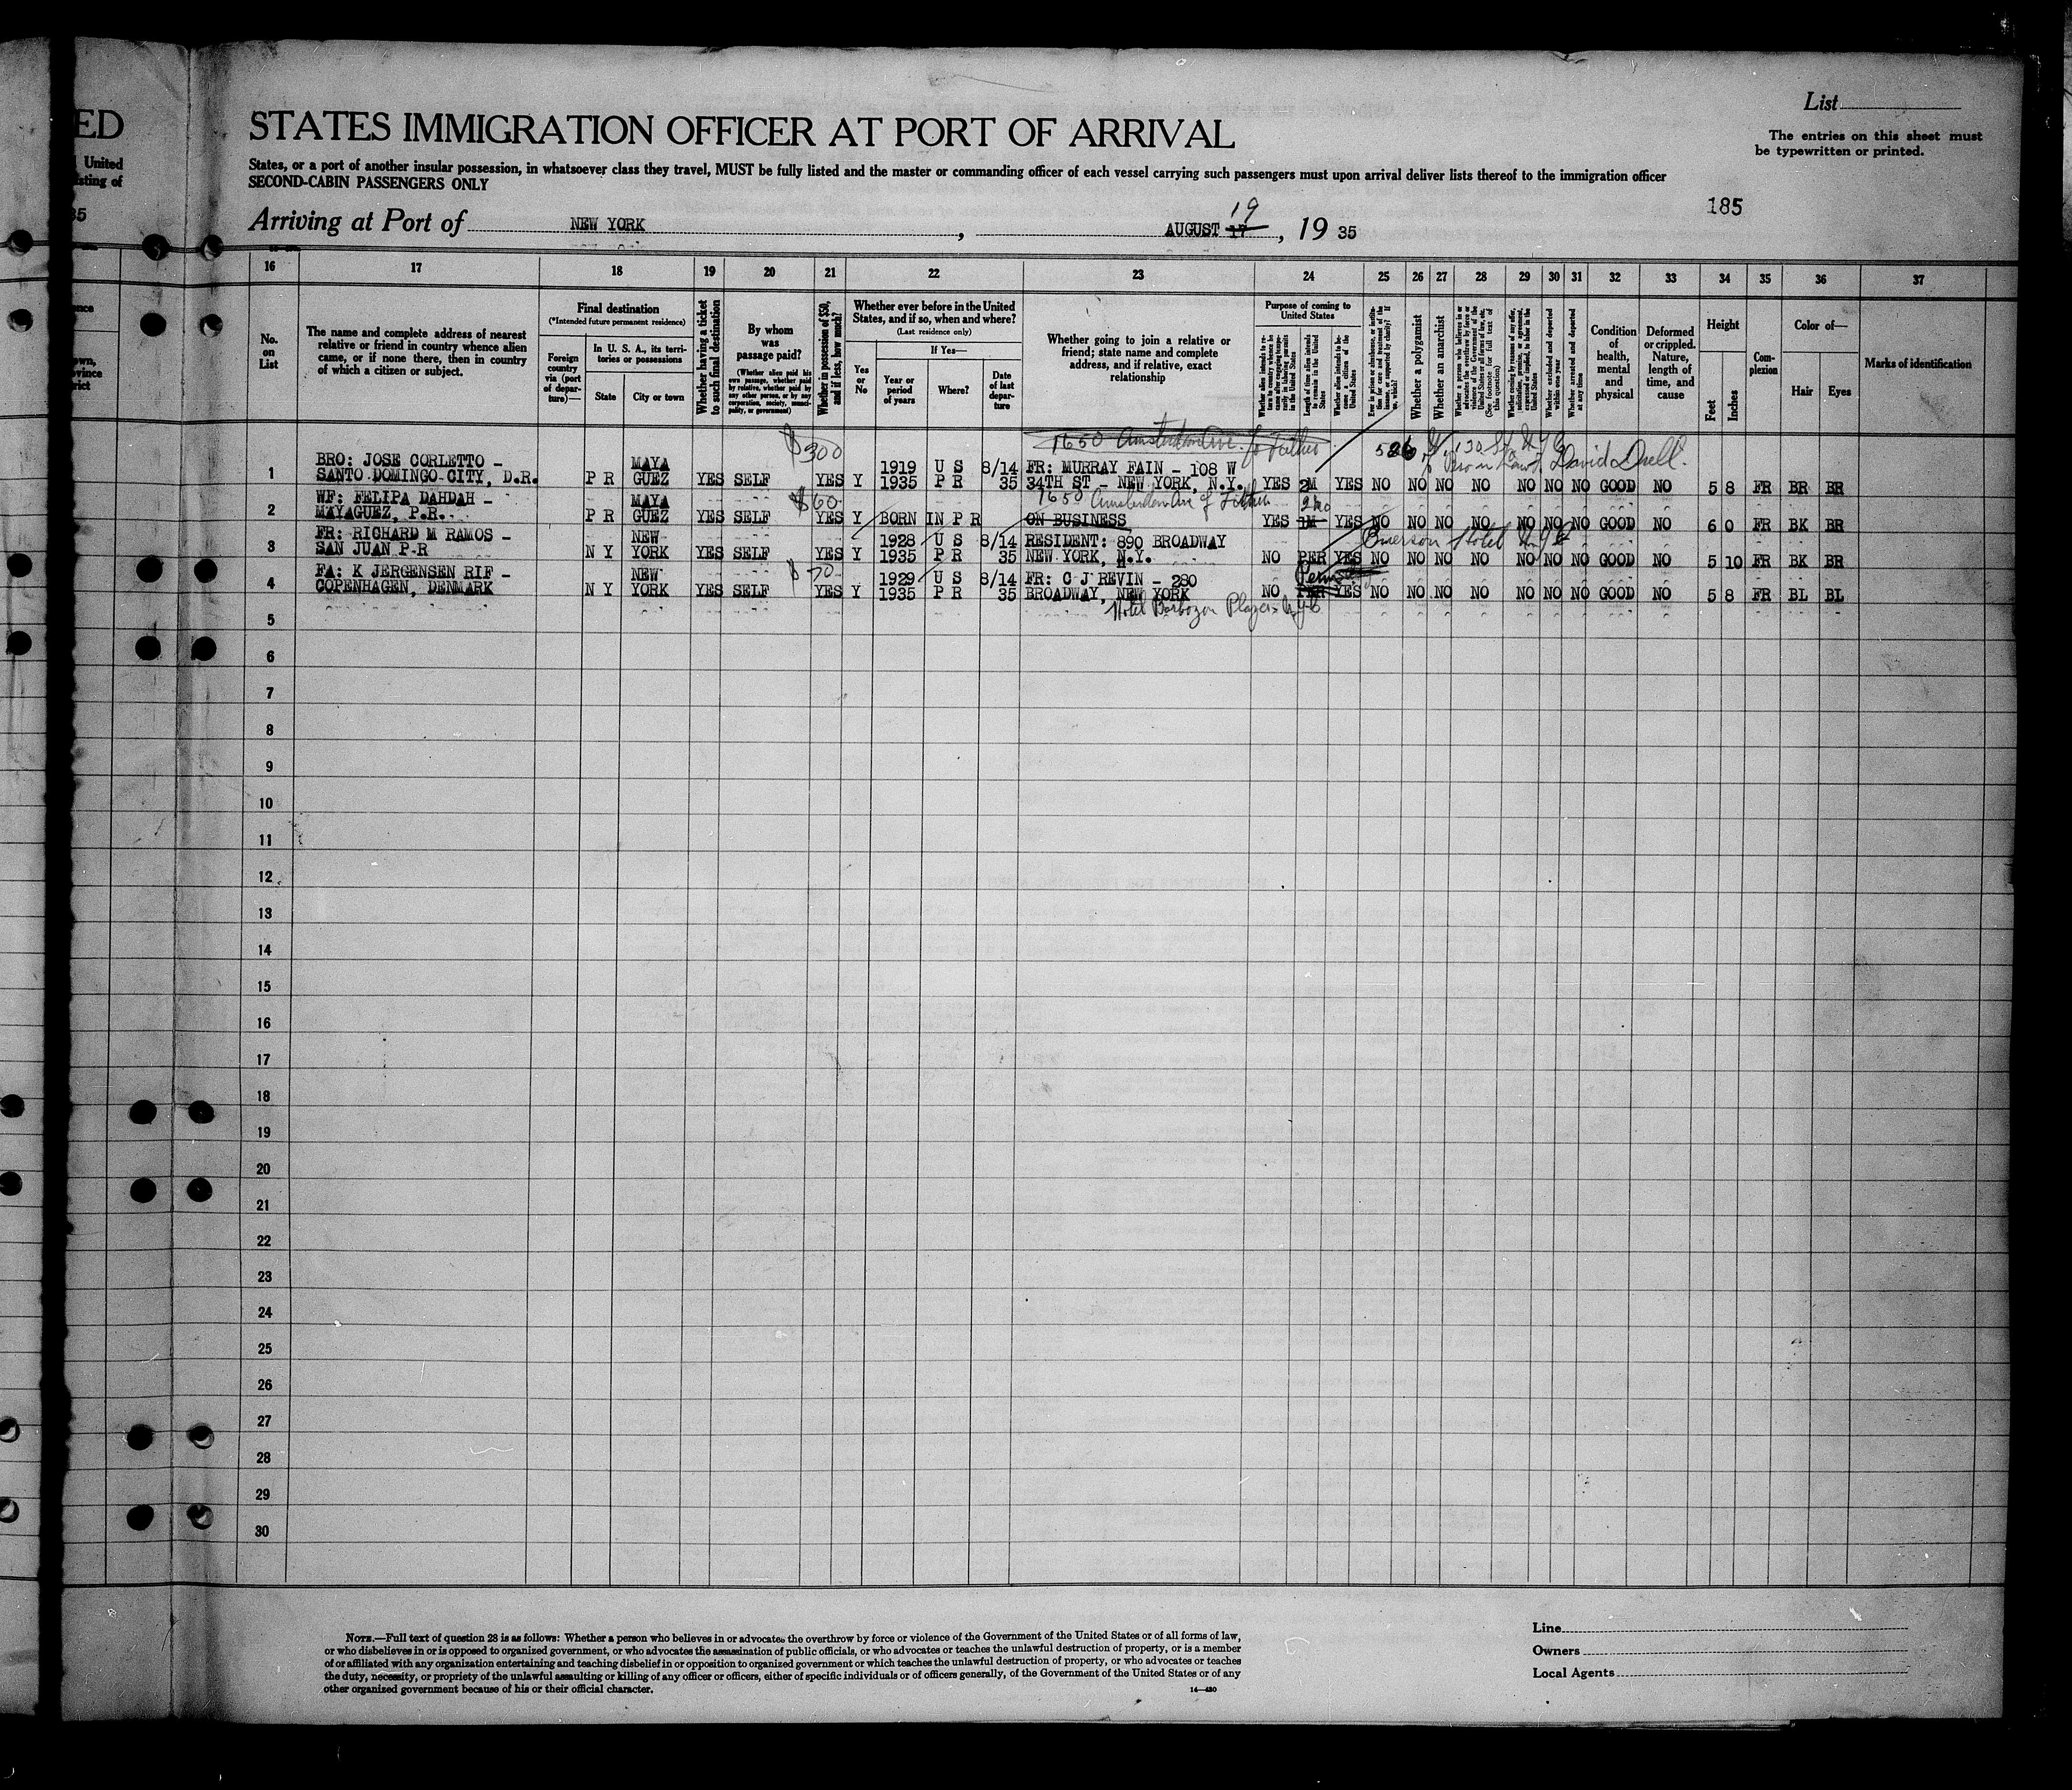 ED
United
isting of
35
List
The entries on this sheet must
be typewritten or printed.
STATES IMMIGRATION OFFICER AT PORT OF ARRIVAL
States, or a port of another insular possession, in whatsoever class they travel, MUST be fully listed and the master or commanding officer of each vessel carrying such passengers must upon arrival deliver lists thereof to the immigration officer
SECOND-CABIN PASSENGERS ONLY
185
Arriving at Port of NEW YORK , AUGUST 17 19 , 19 35
16 17 18 19 20 21 22 23 24 25 26 27 28 29 30 31 32 33 34 35 36 37
No. on List
The name and complete address of nearest
relative or friend in country whence alien
came, or if none there, then in country
of which a citizen or subject.
Final destination
(*Intended future permanent residence)
Foreign country via (port of departure)—
In U. S. A., its territories or possessions
State
City or town
Whether having a ticket to such final destination
By whom was passage paid?
(Whether alien paid his own passage, whether paid by relative, whether paid by any other person, or by any corporation, society, municipality, or government)
Whether in possession of $50, and if less, how much?
Whether ever before in the United
States, and if so, when and where?
(Last residence only)
Yes or No
If Yes—
Year or period of years
Where?
Date of last departure
Whether going to join a relative or
friend; state name and complete
address, and if relative, exact
relationship
Purpose of coming to United States
Length of time alien intends to remain in the United States
Whether a polygamist
Whether an anarchist
(See footnote for full text of this question)
Whether excluded and deported within one year
Whether arrested and deported at any time
Condition of health, mental and physical
Deformed or crippled. Nature, length of time, and cause
Height
Feet
Inches
Complexion
Color of—
Hair
Eyes
Marks of identification
$300 1650 Amsterdam Ave. Father 526 130 St N.Y.C. David
1 BRO: JOSE CORLETTO - MAYA 1919 U S 8/14 FR: MURRAY FAIN - 108 W
SANTO DOMINGO CITY, D.R. P R GUEZ YES SELF YES Y 1935 P R 35 34TH ST - NEW YORK, N.Y. YES 2M YES NO NO NO NO NO NO NO GOOD NO 5 8 FR BR BR
$60 1650 Amsterdam Ave
2 WF: FELIPA DAHDAH - MAYA
MAYAGUEZ, P.R. P R GUEZ YES SELF YES Y BORN IN P R ON BUSINESS YES 1M YES NO NO NO NO NO NO NO GOOD NO 6 0 FR BK BR
3 FR: RICHARD M RAMOS - NEW 1928 U S 8/14 RESIDENT: 890 BROADWAY Emerson Hotel
SAN JUAN P R N Y YORK YES SELF YES Y 1935 P R 35 NEW YORK, N.Y. NO PER YES NO NO NO NO NO NO NO GOOD NO 5 10 FR BK BR
$70
4 FA: K JERGENSEN RIF - NEW 1929 U S 8/14 FR: C J REVIN - 280
COPENHAGEN, DENMARK N Y YORK YES SELF YES Y 1935 P R 35 BROADWAY, NEW YORK NO PER YES NO NO NO NO NO NO NO GOOD NO 5 8 FR BL BL
Hotel Barbizon Plaza N.Y.C.
5
6
7
8
9
10
11
12
13
14
15
16
17
18
19
20
21
22
23
24
25
26
27
28
29
30
NOTE.—Full text of question 28 is as follows: Whether a person who believes in or advocates the overthrow by force or violence of the Government of the United States or of all forms of law,
or who disbelieves in or is opposed to organized government, or who advocates the assassination of public officials, or who advocates or teaches the unlawful destruction of property, or is a member
of or affiliated with any organization entertaining and teaching disbelief in or opposition to organized government or which teaches the unlawful destruction of property, or who advocates or teaches
the duty, necessity, or propriety of the unlawful assaulting or killing of any officer or officers, either of specific individuals or of officers generally, of the Government of the United States or of any
other organized government because of his or their official character.
14—430
Line
Owners
Local Agents